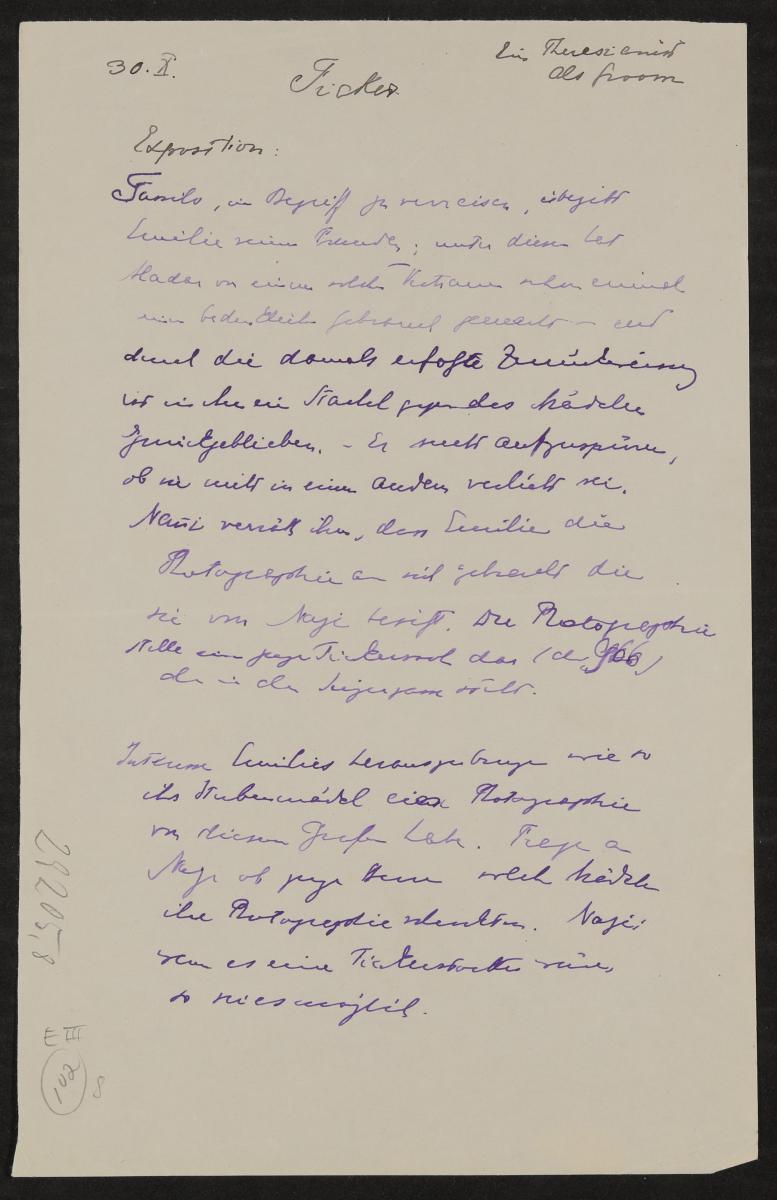 30. X.
Ein Theresianist
als Groom
Fiaker
Exposition:
Tassilo, im Begriff zu verreisen, übergibt
Emilie seinen Freunden; unter diesen hat
von einem solchen Vertrauen schon einmal
einen bedenklichen Gebrauch gemacht – und
durch die damals erfolgte Zurückweisung
ist in ihm ein Stachel gegen das Mädchen
zurückgeblieben. – Er sucht aufzuspüren,
ob sie nicht in einen andern verliebt sei.
Nazi verräth ihm, dass Emilie die
Photographie an sich gebracht die
sie von Nazi besitzt. Die Photographie
stelle einen jungen Fiakerssohn dar (der
der in der steht.
Interesse Emilies herauszubringen wieso
ihr Stubenmädel eine Photographie
von diesem Grafen habe. Frage an
Nazi ob junge Herrn solchen Mädchen
ihre Photographie schenkten. Nazi:
wenn es eine Fiakerstochter wäre,
so sei es möglich.
29205,8
E III
142
8